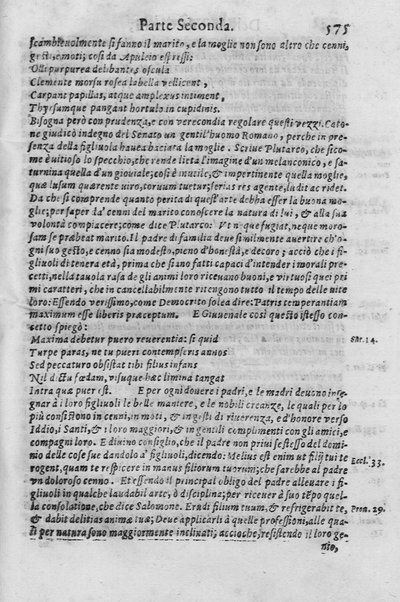 Parte Seconda. 575
scambieuolmente si fanno il marito, e la moglie non sono altro che cenni,
gesti, e moti; così da Apuleio espressi:
Olli purpurea delibantes oscula
Clemente morsu rosea labella vellicent,
Carpant papillas, atque amplexus intiment,
Thyrsumque pangant hortulo in cupidinis.
Bisogna però con prudenza, e con verecondia regolare questi vezzi. Cato-
ne giudicò indegno del Senato un gentil'huomo Romano, perche in pre-
senza della figliuola hauea baciata la moglie. Scriue Plutarco, che sico-
me è uitioso lo specchio, che rende lieta l'imagine d'un melanconico, e sa-
turnina quella d'un giouiale; così è inutile, & impertinente quella moglie,
quæ lusum quærente viro, toruum tuetur; serias res agente, ludit ac ridet.
Da che si comprende quanto perita di quest'arte debba esser la buona mo-
glie; per saper da' cenni del marito conoscere la natura di lui, & alla sua
volontà compiacere; come dice Plutarco: Vt neque fugiat, neque moro-
sam se præbeat marito. Il padre di famiglia deue similmente auertire ch'o-
gni suo gesto, e cenno sia modesto, pieno d'honestà, e decoro; acciò che i fi-
gliuoli di tenera età, prima che siano fatti capaci d'intender i morali pre-
cetti, nella tauola rasa degli animi loro riceuano buoni, e virtuosi quei pri
mi caratteri, che in cancellabilmente ritengono tutto il tempo delle vite
loro: Essendo verissimo, come Democrito solea dire: Patris temperantiam
maximum esse liberis præceptum. E Giuuenale così questo istesso con-
cetto spiegò:
Maxima debetur puero reuerentia: si quid Sat. 14.
Turpe paras, ne tu pueri contempseris annos
Sed peccatura obsistat tibi filius infans
Nil dictu fœdam, visuque hæc limina tangat
Intra quæ puer est. E per ogni douere i padri, e le madri deuono inse-
gnare à i loro figliuoli le belle maniere, e le nobili creanze, le quali per lo
più consistono in cenni, in moti, & in gesti di riuerenza, e d'honore verso
Iddio, i Santi, & i loro maggiori, & in gentili complimenti con gli amici, e
compagni loro. E diuino consiglio, che il padre non priui se stesso del domi-
nio delle cose sue dandolo a' figliuoli, dicendo: Melius est enim ut filij tui te
rogent, quam te respicere in manus filiorum tuorum; che sarebbe al padre Eccl. 33.
vn doloroso cenno. Et essendo il principal obligo del padre alleuare i fi-
gliuoli in qualche laudabil arte, ò disciplina; per riceuer à suo tẽpo quel-
la consolatione, che dice Salomone. Erudi filium tuum, & refrigerabit te, Pro. 29.
& dabit delitias animæ tuæ; Deue applicarli à quelle professioni, alle qua-
li per natura sono maggiormente inclinati; accioche, resistendo il loro ge-
nio,